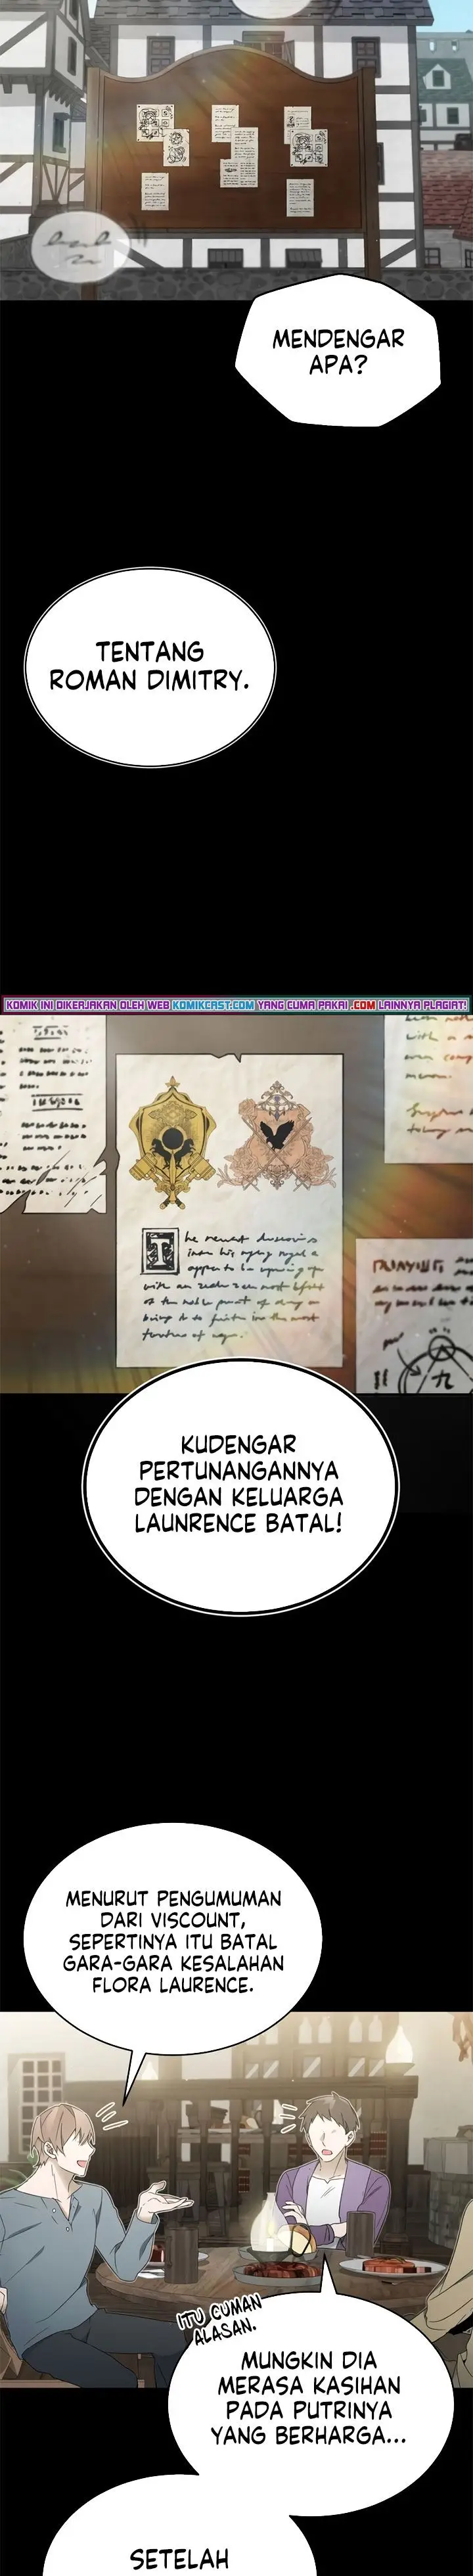 MENDENGAR
APA?
TENTANG
ROMAN DIMITRY.
KOMIK INI DIKERJAKAN OLEH WEB KOMIKCAST.COM YANG CUMA PAKAI .COM LAINNYA PLAGIAT!
KUDENGAR
PERTUNANGANNYA
DENGAN KELUARGA
LAUNRENCE BATAL!
MENURUT PENGUMUMAN
DARI VISCOUNT,
SEPERTINYA ITU BATAL
GARA-GARA KESALAHAN
FLORA LAURENCE.
ITU CUMAN
ALASAN.
MUNGKIN DIA
MERASA KASIHAN
PADA PUTRINYA
YANG BERHARGA...
SETELAH